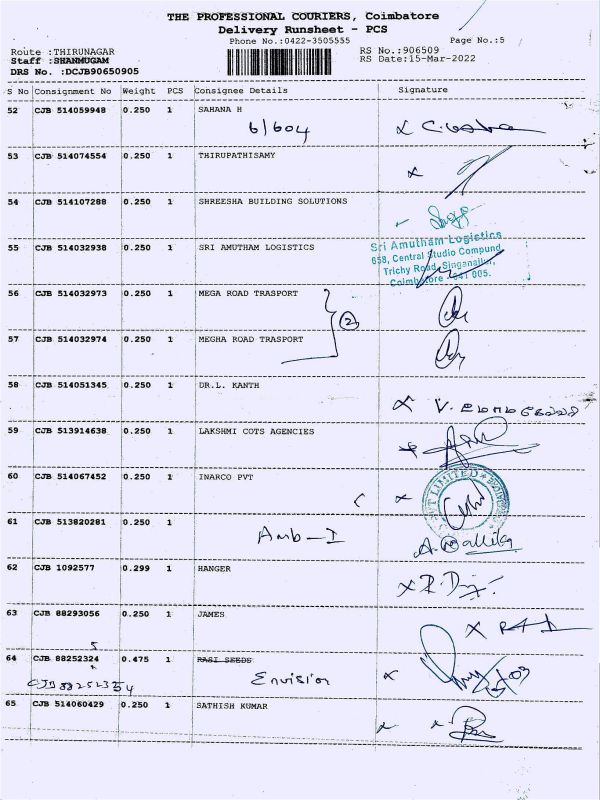 THE PROFESSIONAL COURIERS, Coimbatore
Delivery Runsheet - PCS
Phone No.:0422-3505555
Page No.:5
Route :THIRUNAGAR
RS No.:906509
Staff :SHANMUGAM
RS Date:15-Mar-2022
DRS No. :DCJB90650905
S No Consignment No Weight PCS Consignee Details Signature
52 CJB 514059948 0.250 1 SAHANA H
6/604
53 CJB 514074554 0.250 1 THIRUPATHISAMY
54 CJB 514107288 0.250 1 SHREESHA BUILDING SOLUTIONS
55 CJB 514032938 0.250 1 SRI AMUTHAM LOGISTICS
Sri Amutham Logistics
658, Central Studio Compund,
Trichy Road, Singanallur,
Coimbatore - 641 005.
56 CJB 514032973 0.250 1 MEGA ROAD TRASPORT
2
57 CJB 514032974 0.250 1 MEGHA ROAD TRASPORT
58 CJB 514051345 0.250 1 DR.L. KANTH
59 CJB 513914638 0.250 1 LAKSHMI COTS AGENCIES
60 CJB 514067452 0.250 1 INARCO PVT
LIMITED
61 CJB 513820281 0.250 1
Amb-I
A. Mallika
62 CJB 1092577 0.299 1 HANGER
63 CJB 88293056 0.250 1 JAMES
5
64 CJB 88252324 0.475 1 RASI SEEDS
CJB 88252354
Envision
65 CJB 514060429 0.250 1 SATHISH KUMAR